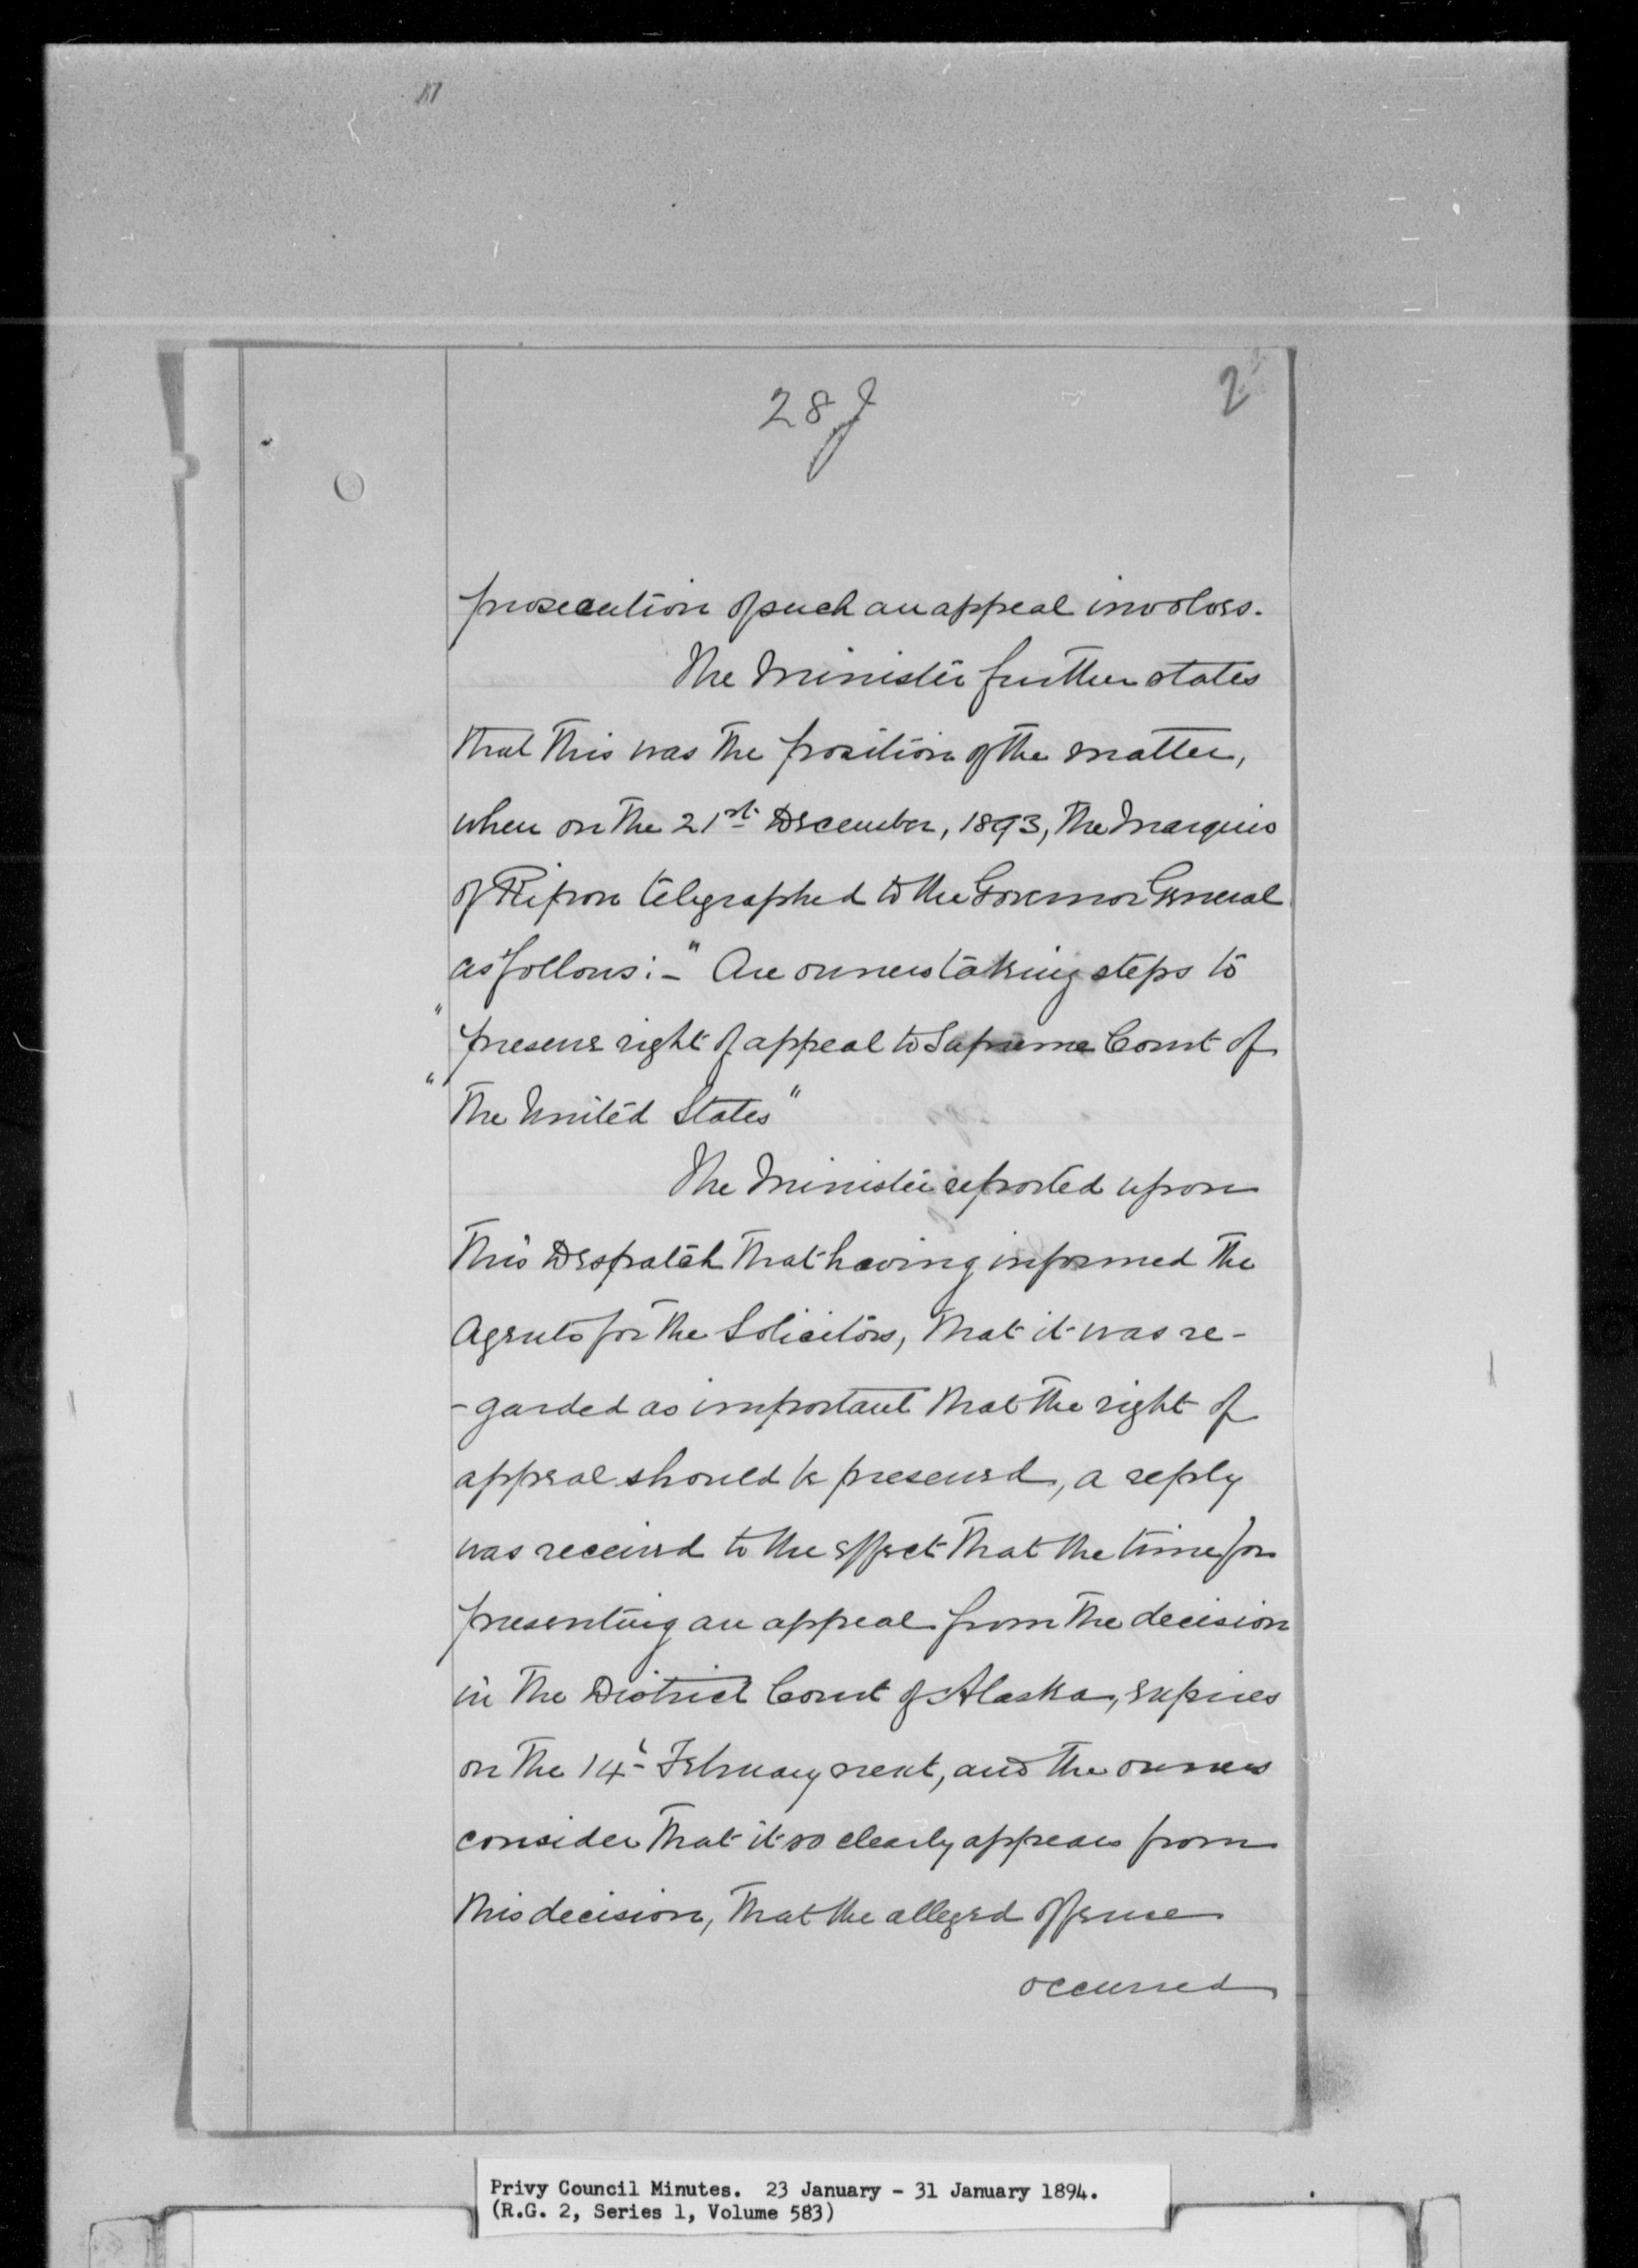 28 J
2
prosecution of such an appeal involves.
The Minister further states
that this was the position of the matter,
when on the 21st December, 1893, the Marquis
of Ripon telegraphed to the Governor General
as follows:- "Are owners taking steps to
"preserve right of appeal to Supreme Court of
"the United States"
The Minister reported upon
this Despatch that having informed the
Agents for the Solicitors, that it was re-
-garded as important that the right of
appeal should be preserved, a reply
was received to the effect that the time for
presenting an appeal from the decision
in the District Court of Alaska, expires
on the 14th February next, and the owners
consider that it so clearly appears from
this decision, that the alleged offense
occurred
Privy Council Minutes. 23 January - 31 January 1894.
(R.G. 2, Series 1, Volume 583)